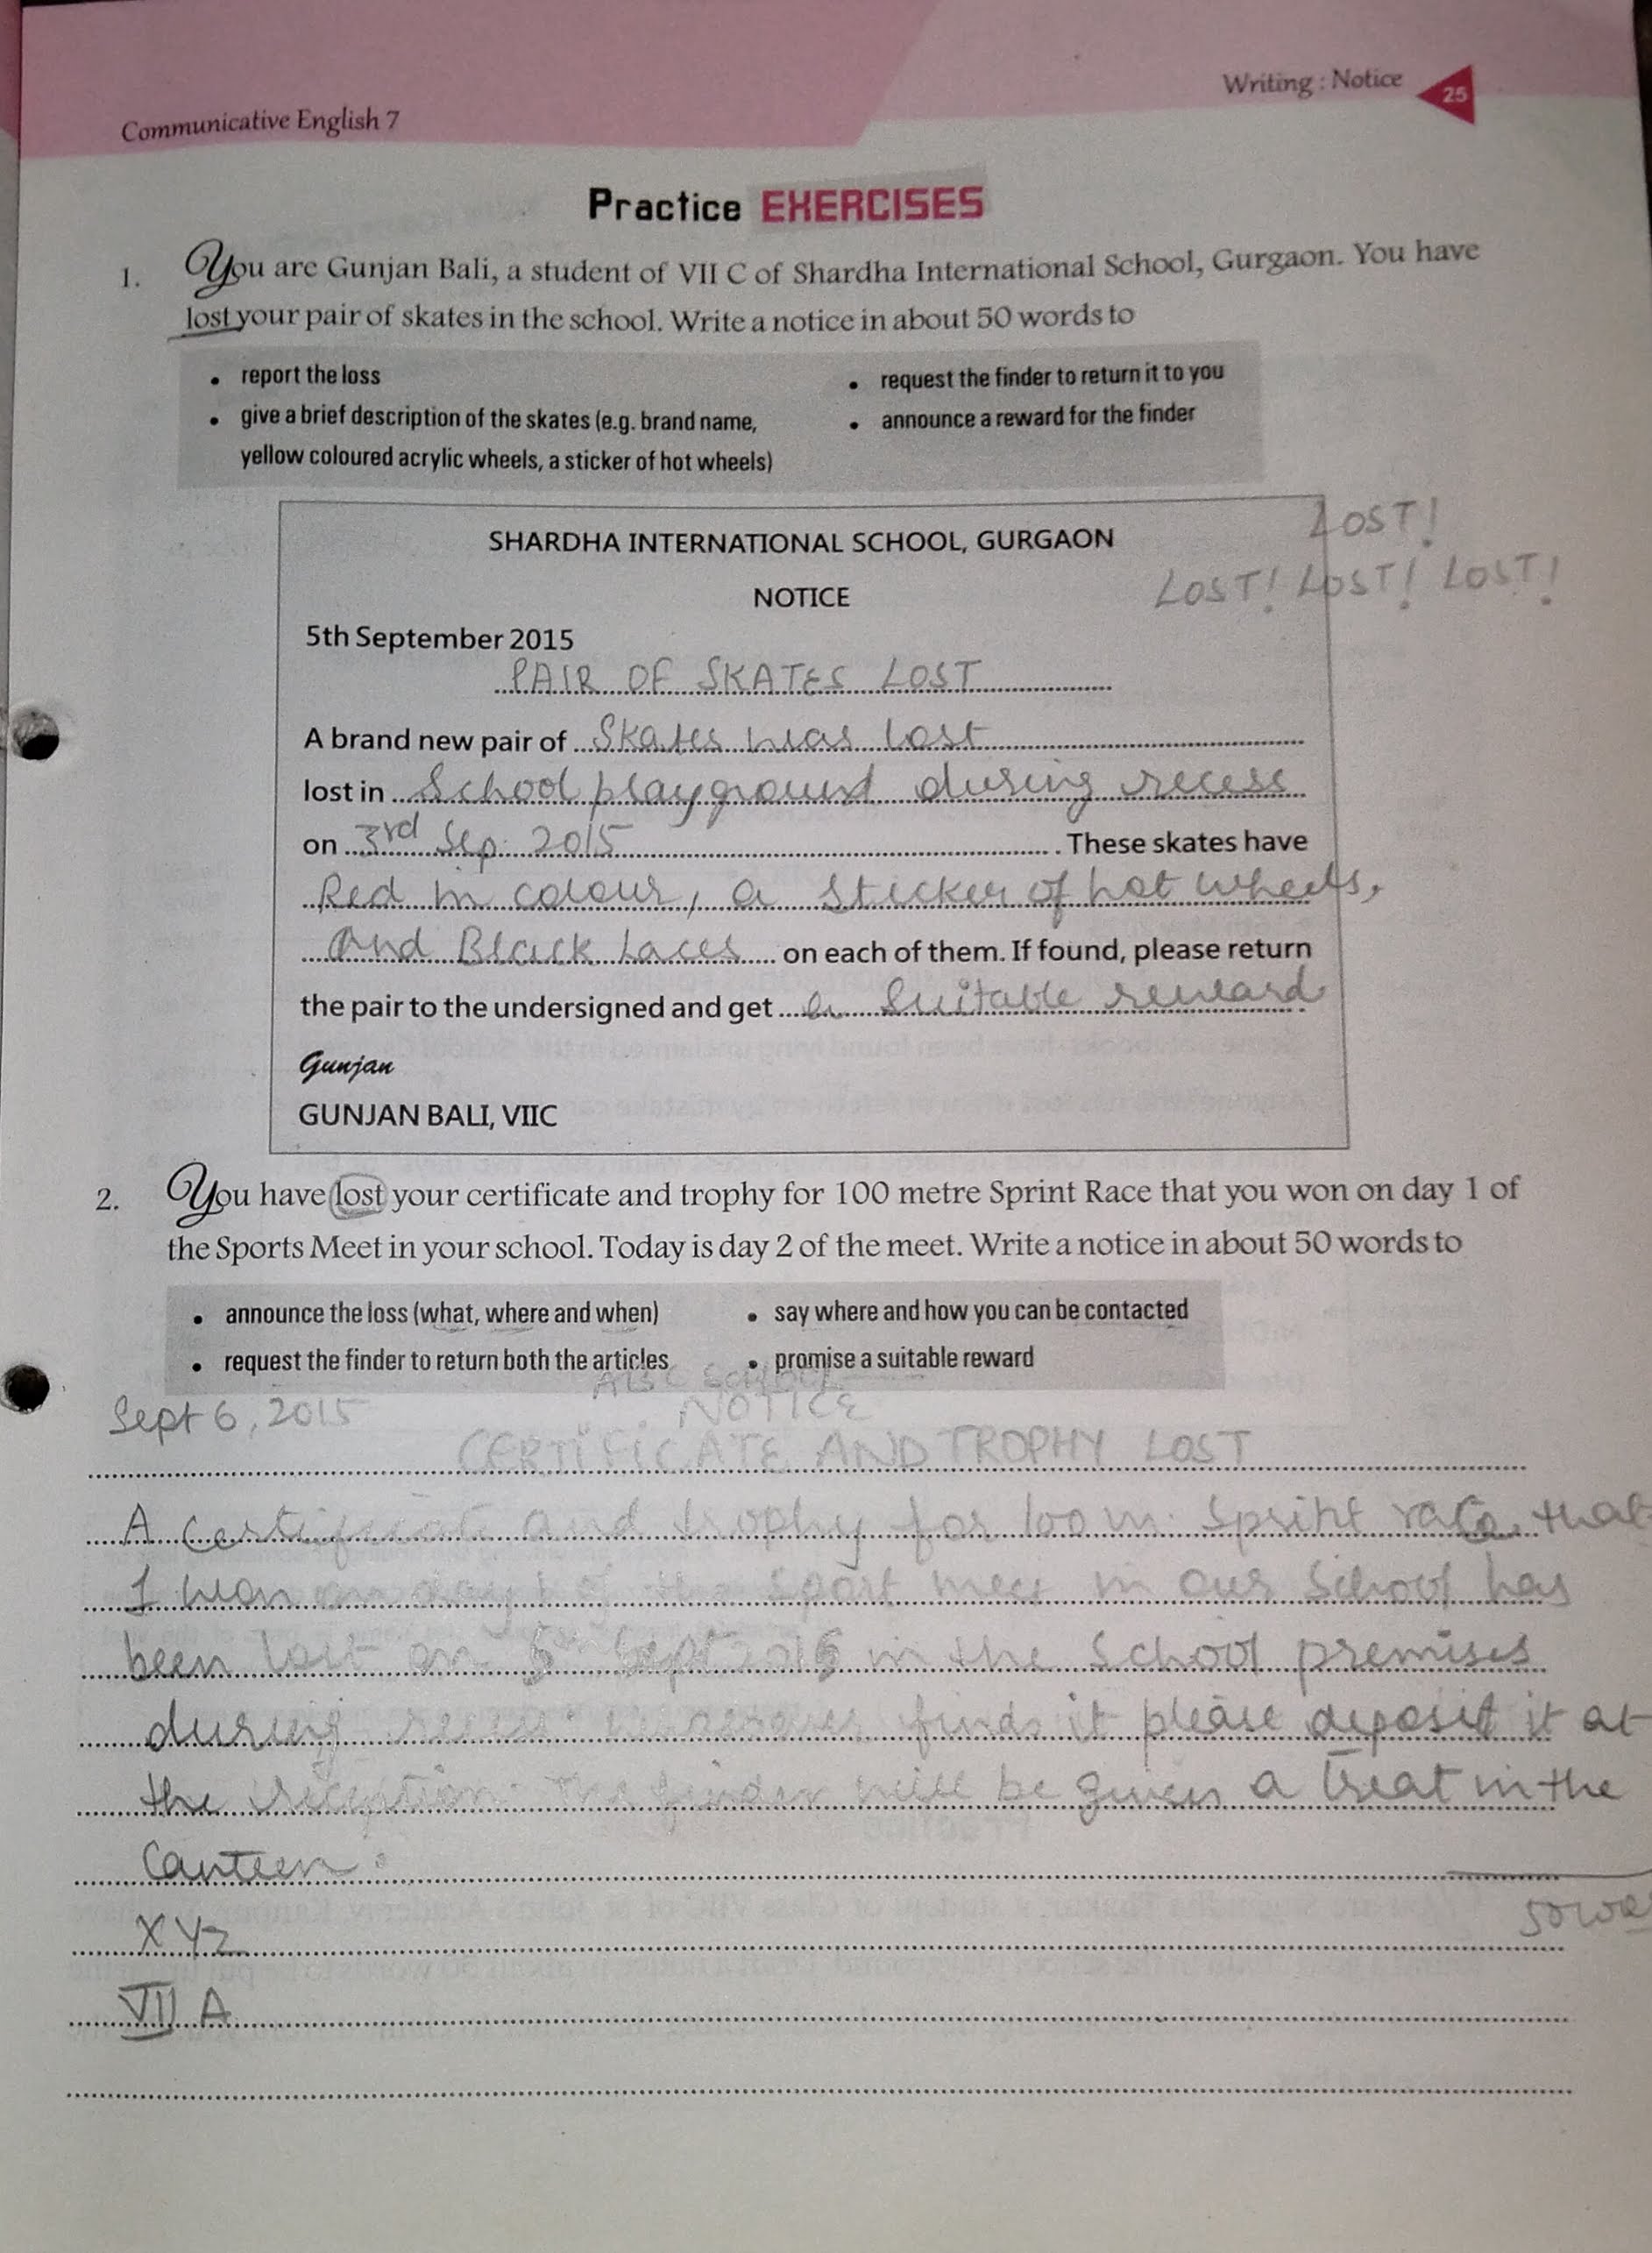 Communicative English 7
Writing : Notice 25
Practice EXERCISES
1. You are Gunjan Bali, a student of VII C of Shardha International School, Gurgaon. You have
lost your pair of skates in the school. Write a notice in about 50 words to
• report the loss
• request the finder to return it to you
• give a brief description of the skates (e.g. brand name,
• announce a reward for the finder
yellow coloured acrylic wheels, a sticker of hot wheels)
LOST!
SHARDHA INTERNATIONAL SCHOOL, GURGAON
LOST! LOST! LOST!
NOTICE
5th September 2015
PAIR OF SKATES LOST
A brand new pair of Skates was lost
lost in School playground during recess
on 3rd Sep. 2015 . These skates have
Red in colour, a sticker of hot wheels,
And Black Laces on each of them. If found, please return
the pair to the undersigned and get a Suitable reward.
Gunjan
GUNJAN BALI, VIIC
2. You have lost your certificate and trophy for 100 metre Sprint Race that you won on day 1 of
the Sports Meet in your school. Today is day 2 of the meet. Write a notice in about 50 words to
• announce the loss (what, where and when)
• say where and how you can be contacted
• request the finder to return both the articles
• promise a suitable reward
SCHOOL
NOTICE
Sept 6, 2015
CERTIFICATE AND TROPHY LOST
A Certificate and trophy for 100 m. Sprint race that
I won on day 1 of the sport meet in our School has
been lost on 5th Sept 2015 in the School premises
during recess. finds it please deposit it at
the reception. The finder will be given a treat in the
Canteen.
XYZ
VII A